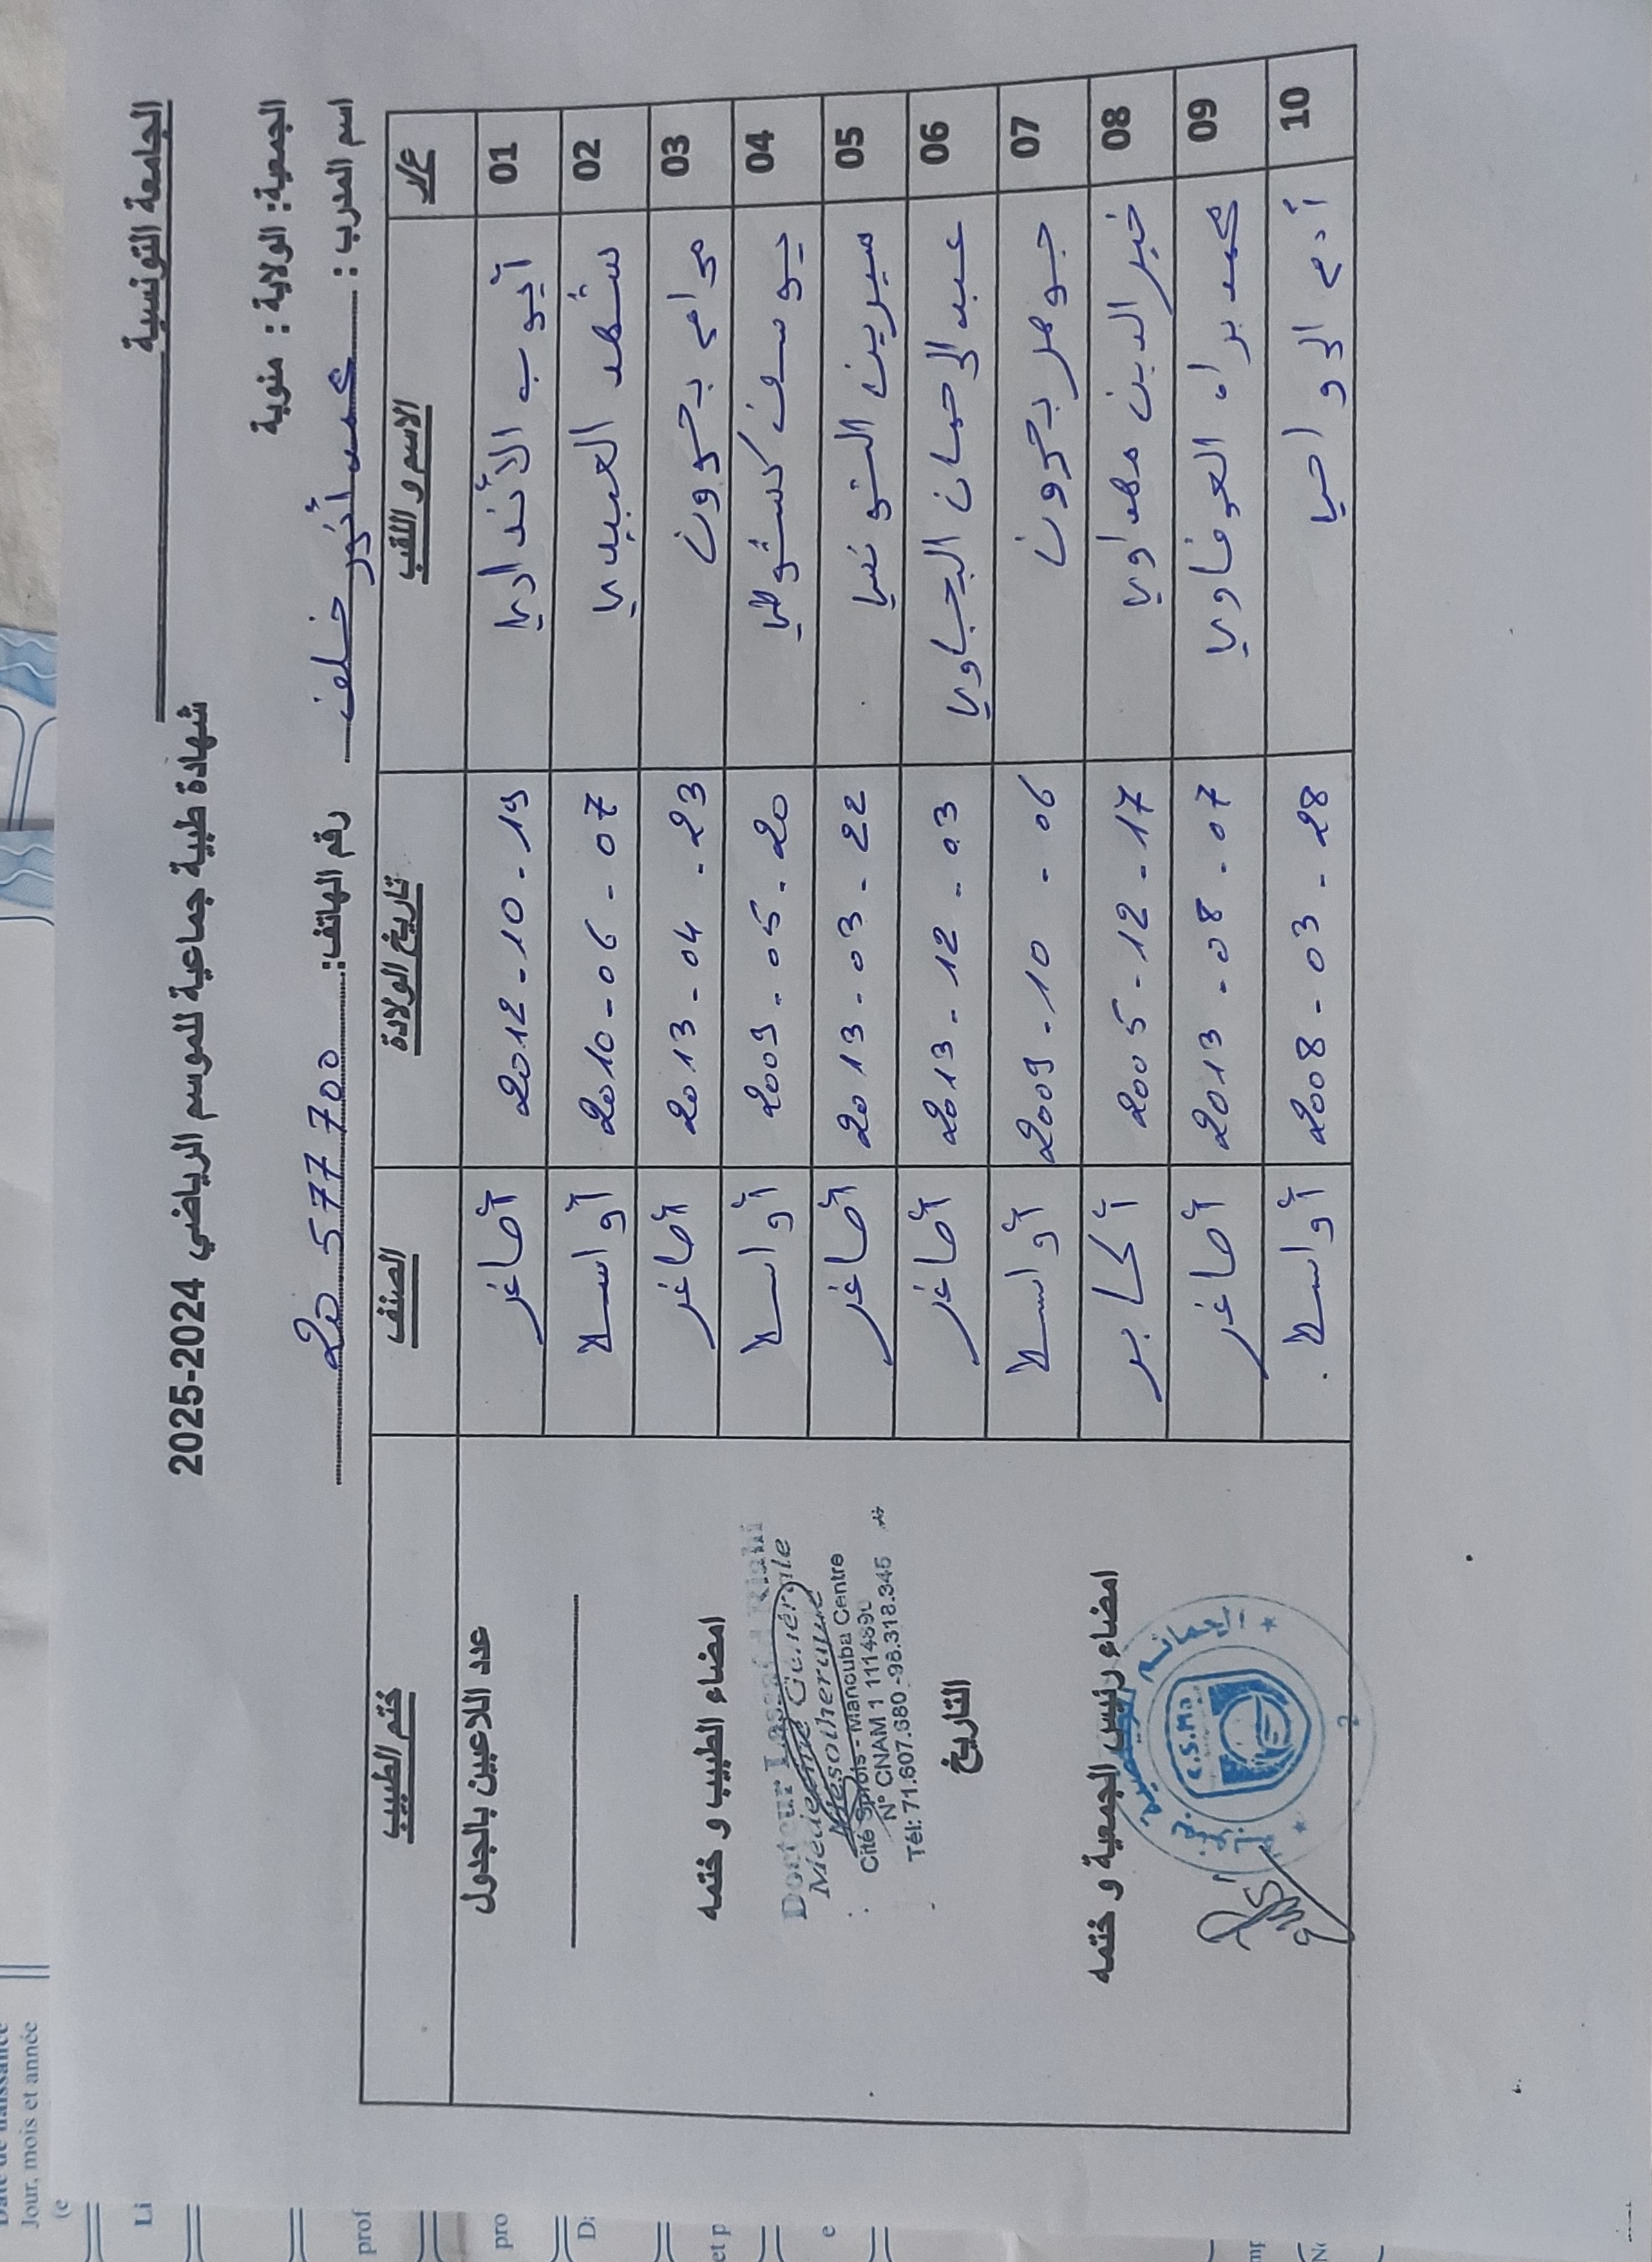 الجامعة التونسية
شهادة طبية جماعية للموسم الرياضي 2024-2025
الجمعية: الولاية : منوبة
اسم المدرب : محمد أنور خلف رقم الهاتف: 20 577 700
ع/ر الاسم و اللقب تاريخ الولادة الصنف ختم الطبيب
01 أيوب 2012-10-19 أصاغر
02 شهد العبيدي 2010-06-07 أواسط
03 مرام بحرون 2013-04-23 أصاغر
04 يوسف 2009-05-20 أواسط
05 سيرين التونسي 2013-03-22 أصاغر
06 عبد الرحمان البجاوي 2013-12-03 أصاغر
07 جوهر بحرون 2009-10-06 أواسط
08 خير الدين مهداوي 2005-12-17 أكابر
09 محمد براء العوفاوي 2013-08-07 أصاغر
10 أدم الرواحي 2008-03-28 أواسط
عدد اللاعبين بالجدول
امضاء الطبيب و ختمه
Docteur Lassad Riahi
Médecine Générale
Mésothérapie
Cité Sprols - Manouba Centre
N° CNAM 1 111489
Tél: 71.607.680 - 98.318.345
التاريخ
امضاء رئيس الجمعية و ختمه
C.S.M.
Date de naissance
Jour, mois et année
(e
Li
prof
pro
et p
e